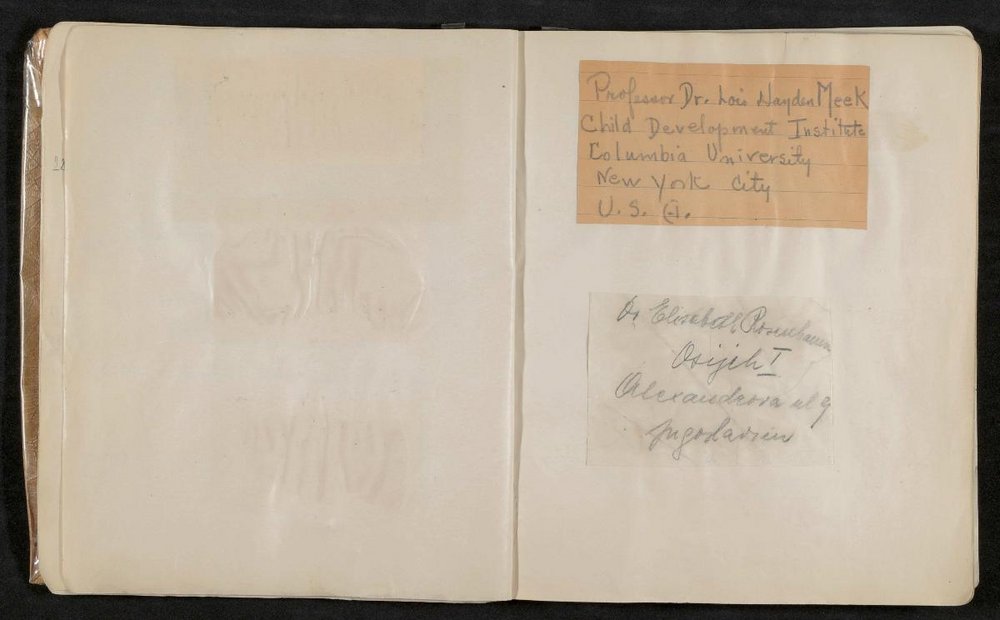 Professor Dr. Lois Hayden Meek
Child Development Institute
Columbia University
New York City
U. S. A.
Dr Elisabeth
Osijek I
Alexandrova ul 9
Jugoslavien